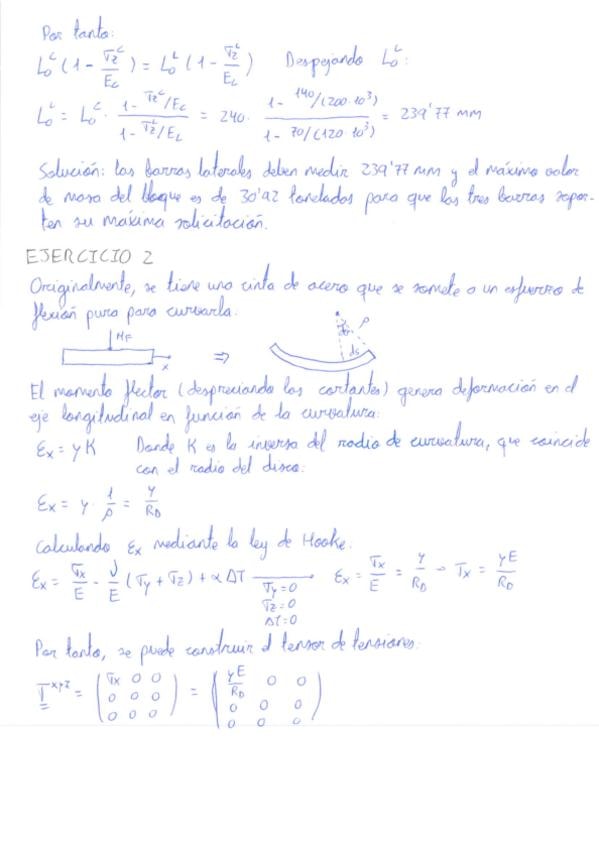 Por tanto:
L₀ᶜ (1 - σzᶜ/E_C) = L₀ᴸ (1 - σzᴸ/E_L) Despejando L₀ᴸ:
L₀ᴸ = L₀ᶜ · (1 - σzᶜ/E_C)/(1 - σzᴸ/E_L) = 240 · (1 - 140/(200·10³))/(1 - 70/(120·10³)) = 239'77 mm
Solución: las barras laterales deben medir 239'77 mm y el máximo valor
de masa del bloque es de 30'92 toneladas para que las tres barras sopor-
ten su máxima solicitación.
EJERCICIO 2
Originalmente, se tiene una cinta de acero que se somete a un esfuerzo de
flexión pura para curvarla.
MF x ⇒ ρ ds
El momento flector (despreciando los cortantes) genera deformación en el
eje longitudinal en función de la curvatura:
εx = y K Donde K es la inversa del radio de curvatura, que coincide
con el radio del disco:
εx = y · 1/ρ = y/R_D
Calculando εx mediante la ley de Hooke:
εx = σx/E - ν/E (σy + σz) + α ΔT → εx = σx/E = y/R_D → σx = yE/R_D
σy = 0
σz = 0
ΔT = 0
Por tanto, se puede construir el tensor de tensiones:
T^xyz = (σx 0 0) = (yE/R_D 0 0)
(0 0 0) (0 0 0)
(0 0 0) (0 0 0)